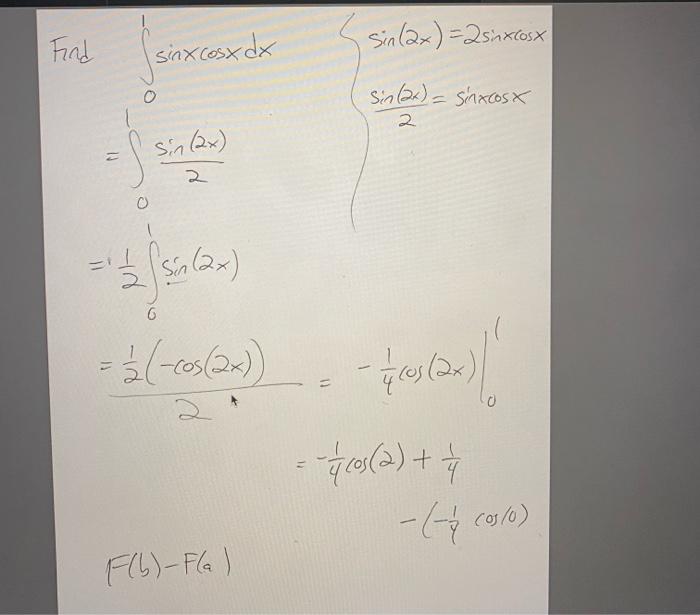 Find ∫₀¹ sinxcosx dx
sin(2x) = 2sinxcosx
sin(2x)/2 = sinxcosx
= ∫₀¹ sin(2x)/2
= ½ ∫₀¹ sin(2x)
= ½(-cos(2x))/2 = -¼cos(2x)|₀¹
= -¼cos(2) + ¼
-(-¼ cos(0)
F(b)-F(a)